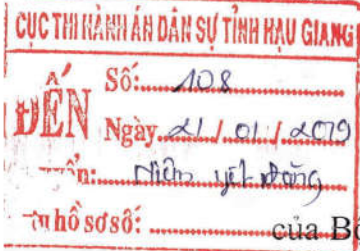 CỤC THI HÀNH ÁN DÂN SỰ TỈNH HẬU GIANG
ĐẾN
Số: 108
Ngày 21/01/2019
n: Niêm yết
hồ sơ số:
của